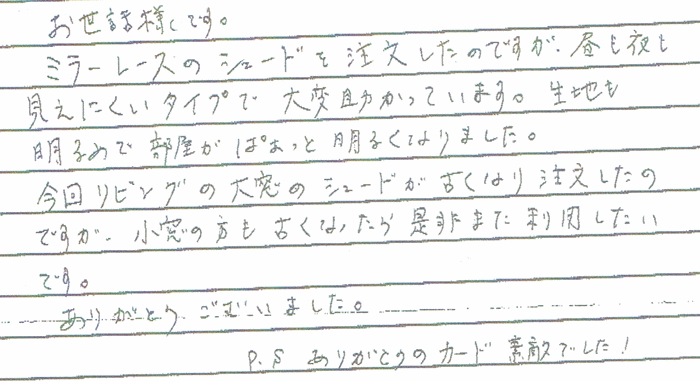 お世話様です。
ミラーレースのシェードを注文したのですが、昼も夜も
見えにくいタイプで大変助かっています。生地も
明るめで部屋がぱぁっと明るくなりました。
今回リビングの大窓のシェードが古くなり注文したの
ですが、小窓の方も古くなったら是非また利用したい
です。
ありがとうございました。
P.S ありがとうのカード素敵でした！